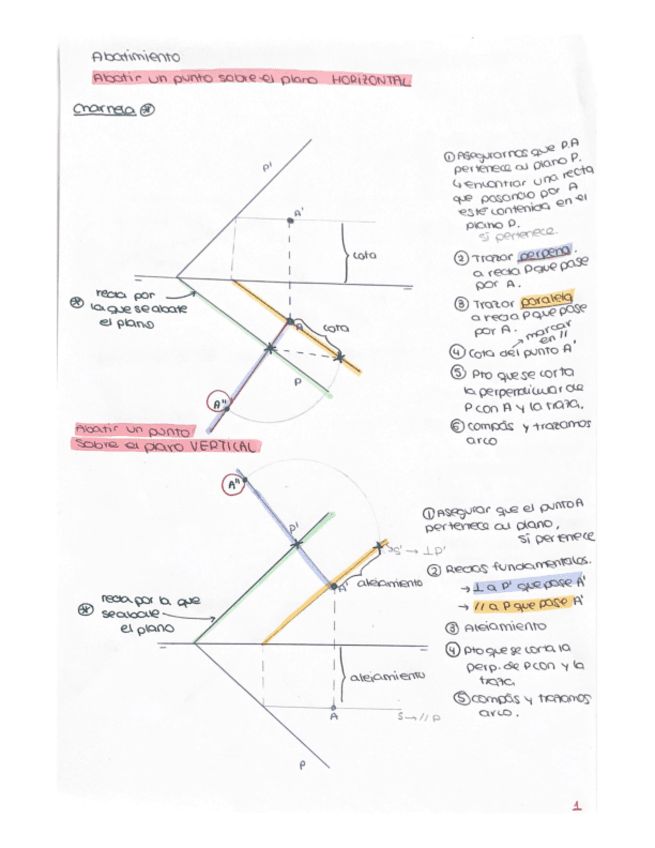 Abatimiento
Abatir un punto sobre el plano HORIZONTAL
charnela *
P'
A'
cota
recta por
* la que se abate
el plano
A
cota
P
A''
① Asegurarnos que P.A
pertenece al plano P.
↳ encontrar una recta
que pasando por A
esté contenida en el
plano P.
si pertenece.
② Trazar perpend.
a recta P que pase
por A.
③ Trazar paralela
a recta P que pase
por A.
marcar
en //
④ Cota del punto A'
⑤ Pto que se corta
la perpendicular de
P con A y la traza.
⑥ compás y trazamos
arco
Abatir un punto
sobre el plano VERTICAL
A''
P'
S' → ⊥ P'
A'
alejamiento
recta por la que
* se abate
el plano
alejamiento
A
S → // P
P
① Asegurar que el punto A
pertenece al plano,
si pertenece
② Rectas fundamentales.
→ ⊥ a P' que pase A'
→ // a P que pase A'
③ Alejamiento
④ pto que se corta la
perp. de P con y la
traza
⑤ compás y trazamos
arco.
1